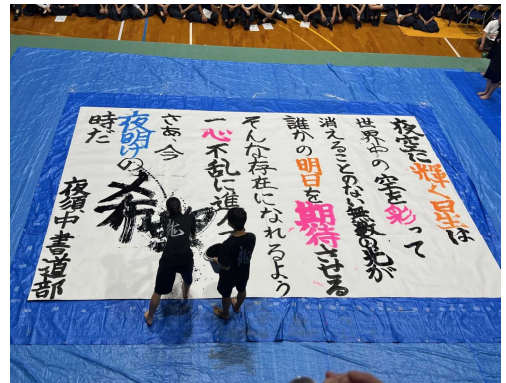 夜空に輝く星は
世界中の空を彩って
消えることのない無数の光が
誰かの明日を期待させる
そんな存在になれるよう
一心不乱に進
さあ今
夜明けの
時だ
希
夜須中書道部
龍